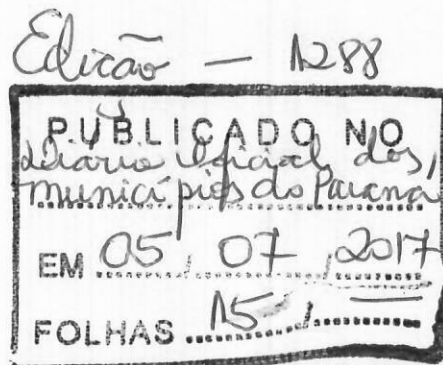 Edição — 1288
PUBLICADO NO
Diário Oficial dos
municípios do Paraná
EM 05 / 07 / 2017
FOLHAS 15 /